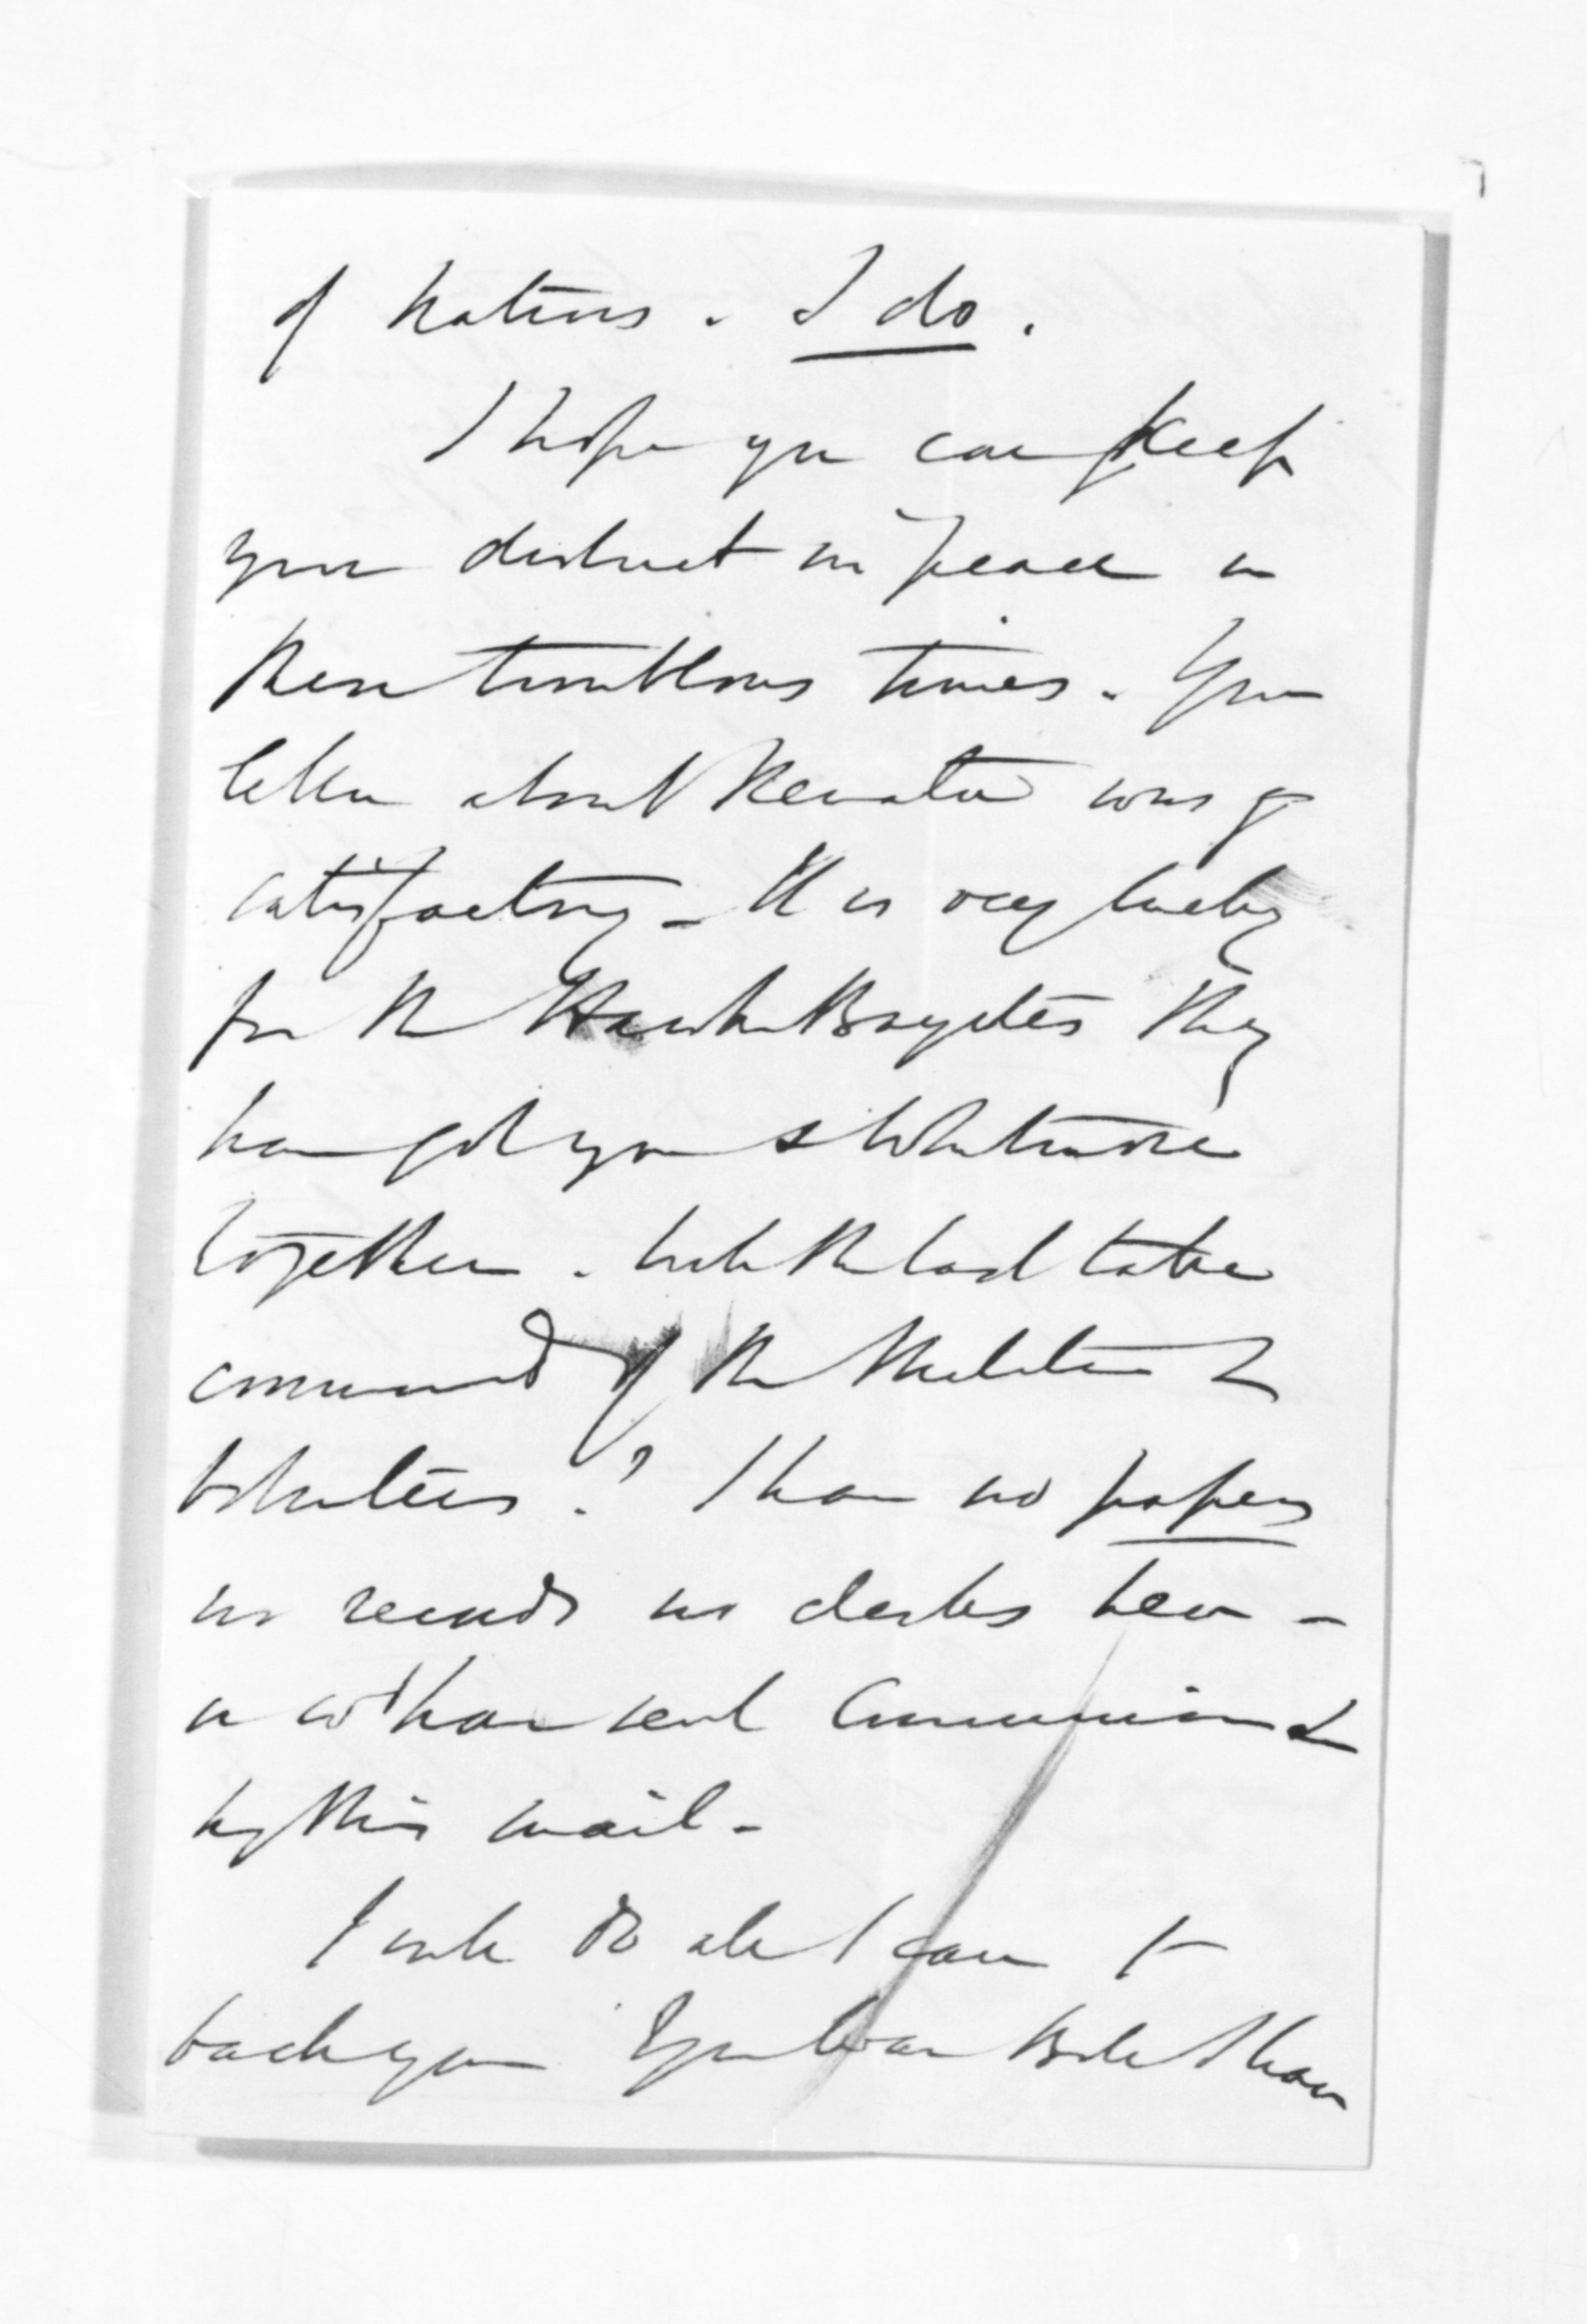 of Natives. I do.
I hope you can keep
your district in peace in
these troublous times. Your
letter about Renata was
satisfactory - It is very lucky
for the Hawke's Bayites they
have got you & Whitmore
together. Will the last take
command of the Militia &
Volunteers? I have no papers
no records no clerks here -
or wd have sent Commission
by this mail -
I will do all I can to
back you You have I have